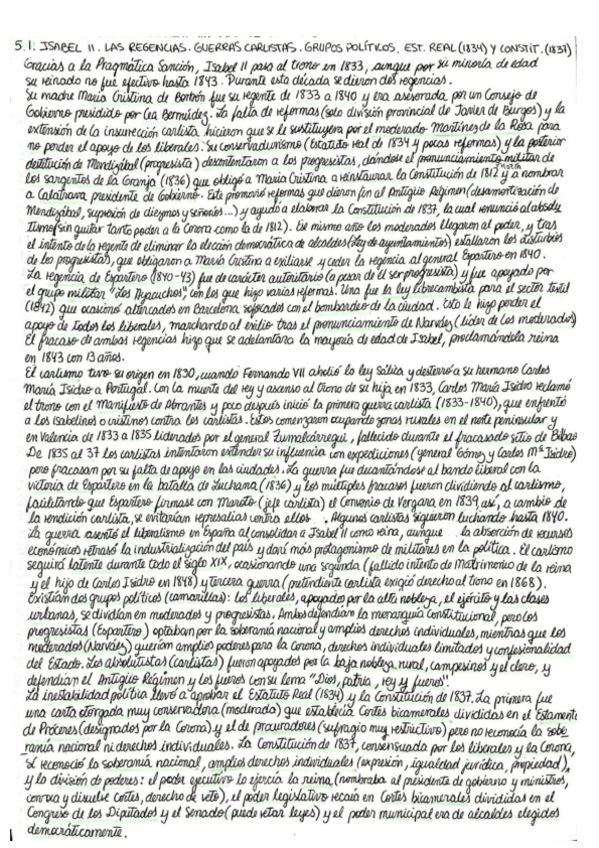 5.1. ISABEL II. LAS REGENCIAS. GUERRAS CARLISTAS. GRUPOS POLÍTICOS. EST. REAL (1834) Y CONSTIT. (1837)
Gracias a la Pragmática Sanción, Isabel II pasó al trono en 1833, aunque por su minoría de edad
su reinado no fue efectivo hasta 1843. Durante esta década se dieron dos regencias.
Su madre María Cristina de Borbón fue su regente de 1833 a 1840 y era asesorada por un Consejo de
Gobierno presidido por Cea Bermúdez. La falta de reformas (solo división provincial de Javier de Burgos) y la
extensión de la insurrección carlista hicieron que se le sustituyera por el moderado Martínez de la Rosa para
no perder el apoyo de los liberales. Su conservadurismo (Estatuto real de 1834 y pocas reformas) y la posterior
destitución de Mendizábal (progresista) descontentaron a los progresistas, dándose el pronunciamiento militar de
los sargentos de la Granja (1836) que obligó a María Cristina a reinstaurar la Constitución de 1812 y a nombrar
a Calatrava presidente de Gobierno. Este promovió reformas que dieron fin al Antiguo Régimen (desamortización de
Mendizábal, supresión de diezmos y señoríos...) y ayudó a elaborar la Constitución de 1837, la cual renunció al absolu
tismo (sin quitar tanto poder a la Corona como la de 1812). Ese mismo año los moderados llegaron al poder, y tras
el intento de la regente de eliminar la elección democrática de alcaldes (ley de ayuntamientos) estallaron los disturbios
de los progresistas, que obligaron a María Cristina a exiliarse y ceder la regencia al general Espartero en 1840.
La regencia de Espartero (1840-43) fue de carácter autoritario (a pesar de él ser progresista) y fue apoyado por
el grupo militar "Los Ayacuchos", con los que hizo varias reformas. Una fue la ley librecambista para el sector textil
(1842) que ocasionó altercados en Barcelona, sofocados con el bombardeo de la ciudad. Esto le hizo perder el
apoyo de todos los liberales, marchando al exilio tras el pronunciamiento de Narváez (líder de los moderados)
El fracaso de ambas regencias hizo que se adelantara la mayoría de edad de Isabel, proclamándola reina
en 1843 con 13 años.
El carlismo tuvo su origen en 1830, cuando Fernando VII abolió la ley Sálica y desterró a su hermano Carlos
María Isidro a Portugal. Con la muerte del rey y ascenso al trono de su hija en 1833, Carlos María Isidro reclamó
el trono con el Manifiesto de Abrantes y poco después inició la primera guerra carlista (1833-1840), que enfrentó
a los isabelinos o cristinos contra los carlistas. Estos comenzaron ocupando zonas rurales en el norte peninsular y
en Valencia de 1833 a 1835 liderados por el general Zumalcárregui, fallecido durante el fracasado sitio de Bilbao
De 1835 al 37 los carlistas intentaron extender su influencia con expediciones (general Gómez y Carlos Mª Isidro)
pero fracasan por su falta de apoyo en las ciudades. La guerra fue decantándose al bando liberal con la
victoria de Espartero en la batalla de Luchana (1836) y los múltiples fracasos fueron dividiendo al carlismo,
facilitando que Espartero firmase con Maroto (jefe carlista) el Convenio de Vergara en 1839, así, a cambio de
la rendición carlista, se evitarían represalias contra ellos. Algunos carlistas siguieron luchando hasta 1840.
La guerra asentó el liberalismo en España al consolidar a Isabel II como reina, aunque la absorción de recursos
económicos retrasó la industrialización del país y dará más protagonismo de militares en la política. El carlismo
seguirá latente durante todo el siglo XIX, ocasionando una segunda (fallido intento de Matrimonio de la reina
y el hijo de Carlos Isidro en 1848) y tercera guerra (pretendiente carlista exigió derecho al trono en 1868).
Existían dos grupos políticos (camarillas): los liberales, apoyados por la alta nobleza, el ejército y las clases
urbanas, se dividían en moderados y progresistas. Ambos defendían la monarquía Constitucional, pero los
progresistas (Espartero) optaban por la soberanía nacional y amplios derechos individuales, mientras que los
moderados (Narváez) querían amplios poderes para la Corona, derechos individuales limitados y confesionalidad
del Estado. Los absolutistas (carlistas) fueron apoyados por la baja nobleza rural, campesinos y el clero, y
defendían el Antiguo Régimen y los fueros con su lema "Dios, patria, rey y fueros".
La inestabilidad política llevó a aprobar el Estatuto Real (1834) y la Constitución de 1837. La primera fue
una carta otorgada muy conservadora (moderada) que establecía Cortes bicamerales divididas en el Estamento
de Próceres (designados por la Corona) y el de procuradores (sufragio muy restrictivo) pero no reconocía la sobe
ranía nacional ni derechos individuales. La Constitución de 1837, consensuada por los liberales y la Corona,
sí reconoció la soberanía nacional, amplios derechos individuales (expresión, igualdad jurídica, propiedad),
y la división de poderes: el poder ejecutivo lo ejercía la reina (nombraba al presidente de gobierno y ministros,
convoca y disuelve cortes, derecho de veto), el poder legislativo recaía en Cortes bicamerales divididas en el
Congreso de los Diputados y el Senado (puede vetar leyes) y el poder municipal era de alcaldes elegidos
democráticamente.